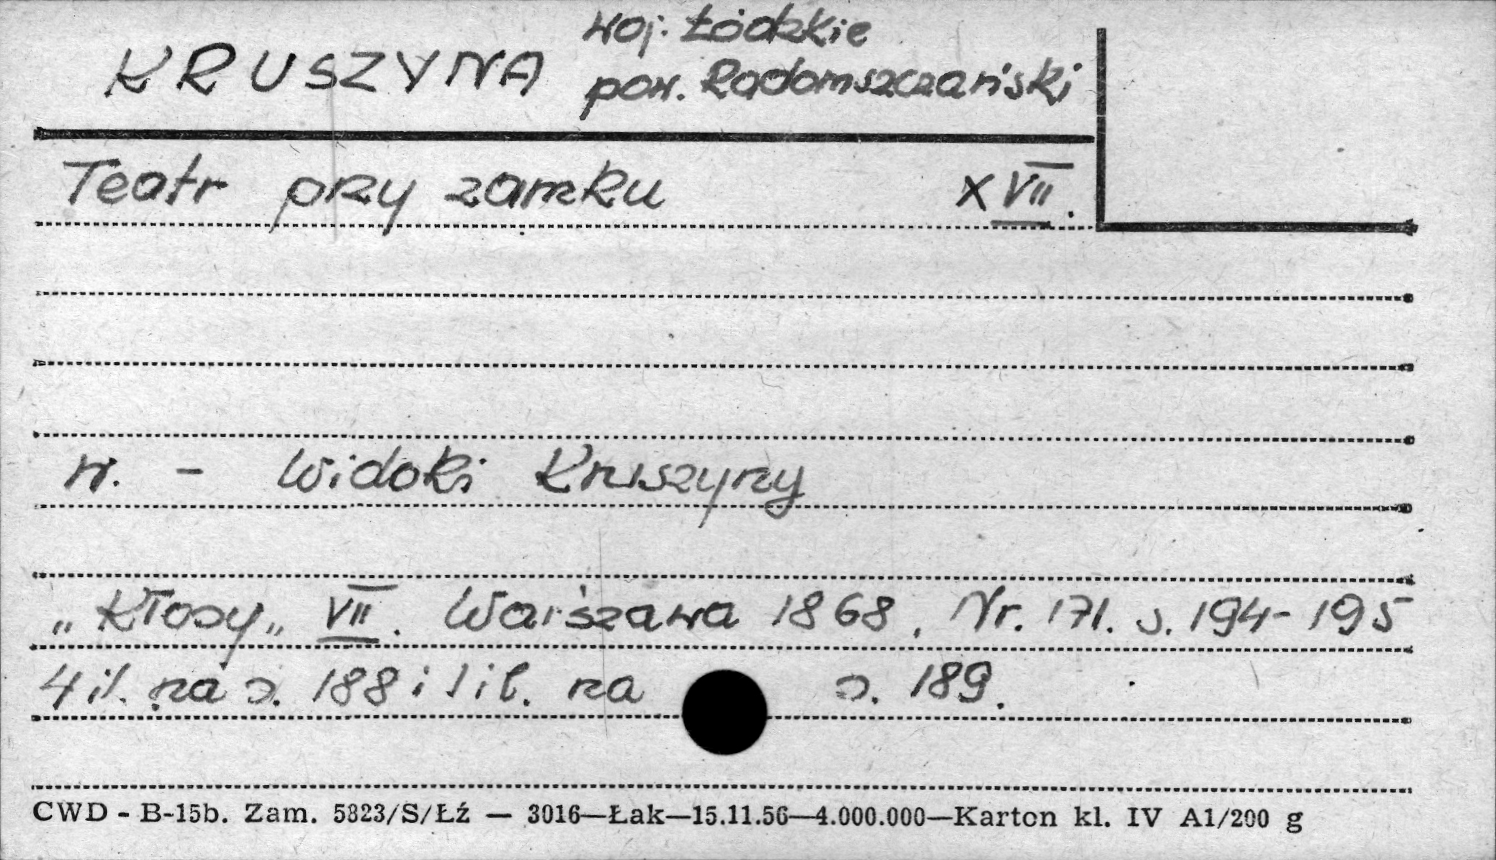 woj. Łódzkie
KRUSZYNA pow. Radomszczański
Teatr przy zamku XVII.
w. - Widoki Kruszyny
„Kłosy„ VII. Warszawa 1868, Nr. 171. s. 194-195
4 il. na s. 188 i 1 il. na s. 189.
CWD - B-15b. Zam. 5823/S/Łź — 3016—Łak—15.11.56—4.000.000—Karton kl. IV A1/200 g